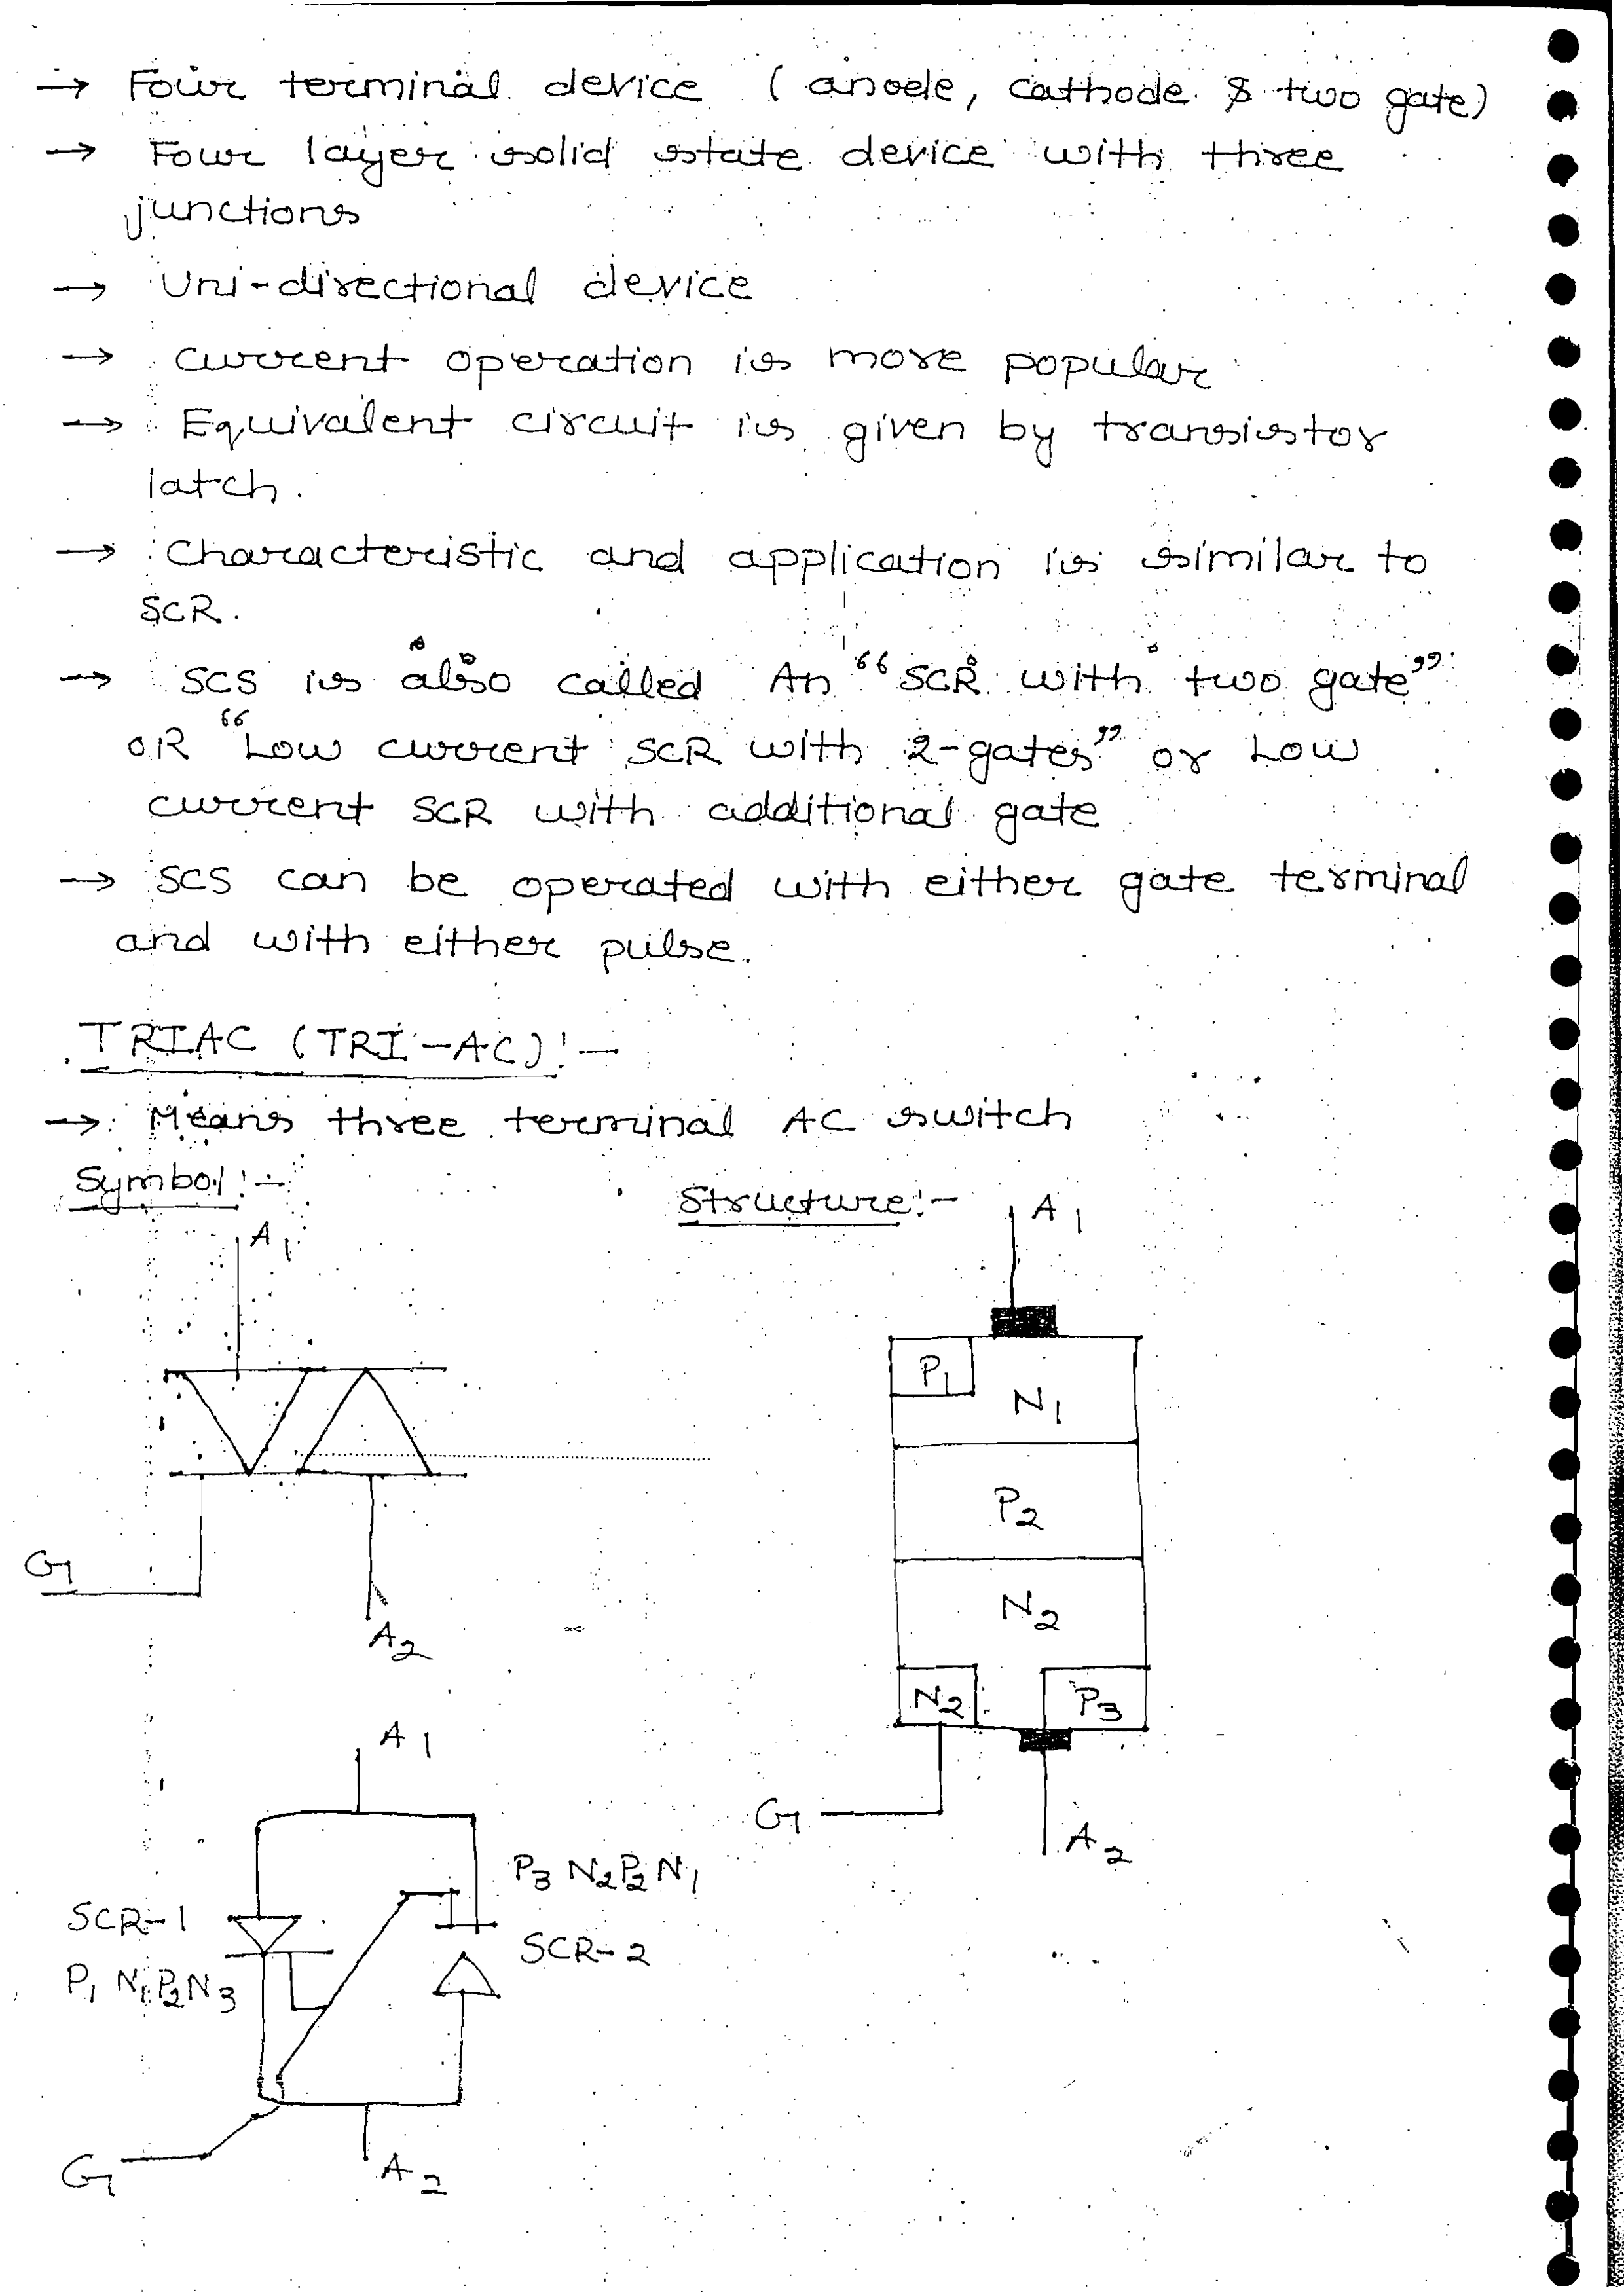 → Four terminal device (anode, cathode & two gate)
→ Four layer solid state device with three
junctions
→ Uni-directional device
→ current operation is more popular
→ Equivalent circuit is given by transistor
latch.
→ Characteristic and application is similar to
SCR.
→ SCS is also called An “SCR with two gate”
OR “Low current SCR with 2-gates” or Low
current SCR with additional gate
→ SCS can be operated with either gate terminal
and with either pulse.
TRIAC (TRI-AC):-
→ Means three terminal AC switch
Symbol:-
Structure:-
A1
G
A2
A1
P1
N1
P2
N2
N2
P3
G
A2
A1
P3 N2P2N1
SCR-1
SCR-2
P1 N1P2N3
G
A2